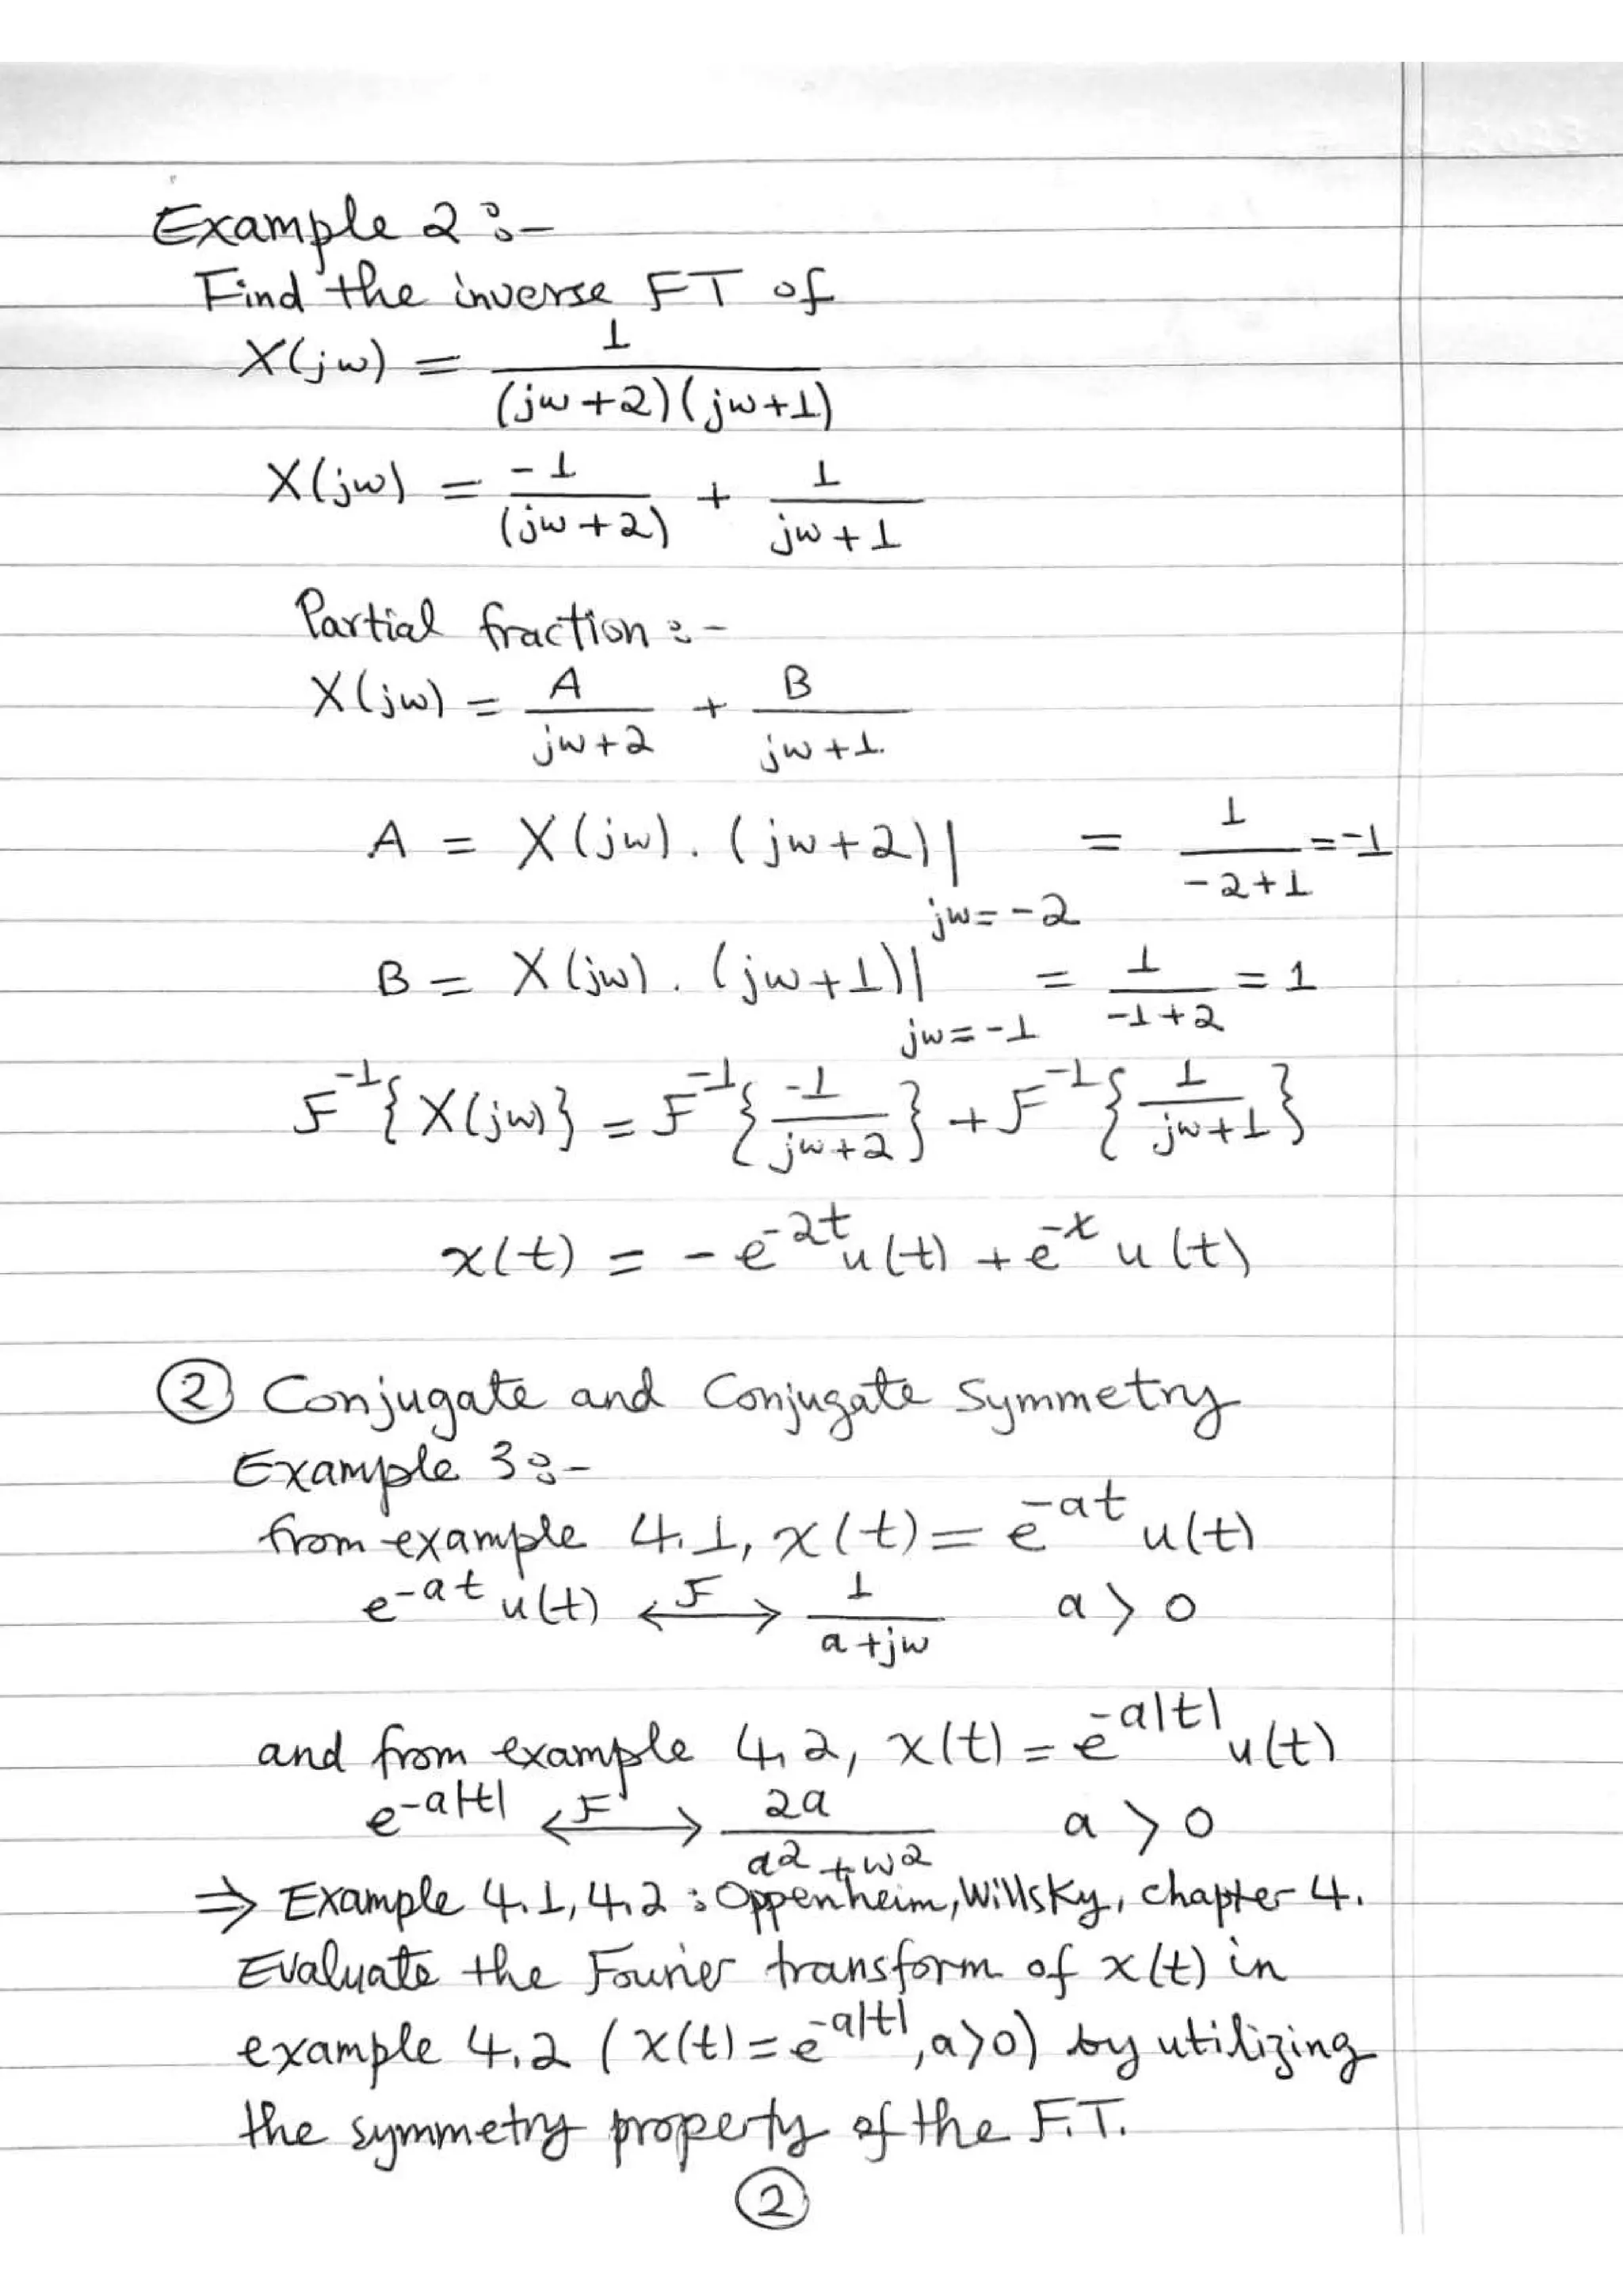 Example 2 :-
Find the inverse FT of
X(jω) = 1 / (jω+2)(jω+1)
X(jω) = -1 / (jω+2) + 1 / jω+1
Partial fraction :-
X(jω) = A / jω+2 + B / jω+1
A = X(jω) . (jω+2)| jω=-2 = 1 / -2+1 = -1
B = X(jω) . (jω+1)| jω=-1 = 1 / -1+2 = 1
F⁻¹{X(jω)} = F⁻¹{-1 / jω+2} + F⁻¹{1 / jω+1}
x(t) = - e^-2t u(t) + e^-t u(t)
② Conjugate and Conjugate Symmetry
Example 3 :-
from example 4.1, x(t) = e^-at u(t)
e^-at u(t) <-F-> 1 / a+jω a > 0
and from example 4.2, x(t) = e^-a|t| u(t)
e^-a|t| <-F-> 2a / a²+ω² a > 0
⇒ Example 4.1, 4.2 : Oppenheim, Willsky, chapter 4.
Evaluate the Fourier transform of x(t) in
example 4.2 (x(t) = e^-a|t|, a>0) by utilizing
the symmetry property of the F.T.
②